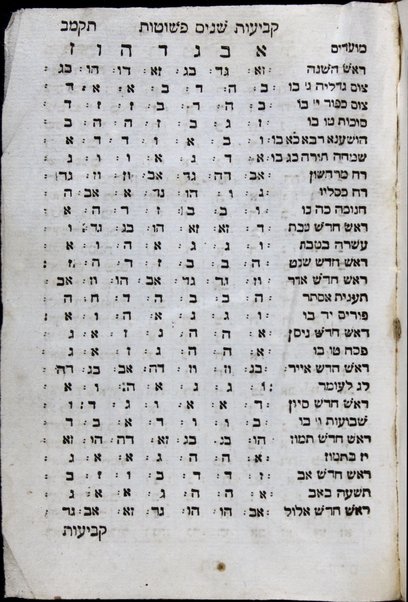 קביעות שנים פשוטות תקמב
מועדים א ב ג ד ה ו ז
ראש השנה זא: גד: בג: זא: דו: הו: בג:
צום גדליה ג׳ בו ב: ה: ד: ב: א: א: ד:
צום כפור י׳ בו ב: ה: ד: ב: ז: ז: ד:
סוכות טו בו ז: ג: ב: ז: ה: ה: ב:
הושענא רבא כא בו ו: ב: א: ו: ד: ד: א:
שמחה תורה כג בו א: ד: ג: א: ו: ו: ג:
רח מרחשון אב: דה: גד: אב: וז: וז: גד:
רח כסליו ג: ו: הו: גד: א: אב: ה:
חנוכה כה בו ו: ב: ב: ז: ד: ה: א:
ראש חדש טבת ד: זא: זא: הו: בג: גד: ו:
עשרה בטבת ו: ג: ג: א: ה: ו: א:
ראש חדש שבט ה: ב: ב: ז: ד: ה: ז:
ראש חדש אדר וז: גד: גד: אב: הו: וז: אב:
תענית אסתר ה: ב: ב: ה: ד: ה: ה:
פורים יד בו ו: ג: ג: א: ה: ו: א:
ראש חדש ניסן א: ה: ה: ג: ז: א: ג:
פסח טו בו א: ה: ה: ג: ז: א: ג:
ראש חדש אייר בג: וז: וז: דה: אב: בג: דה:
לג לעומר ו: ג: ג: א: ה: ו: א:
ראש חדש סיון ד: א: א: ו: ג: ד: ו:
שבועות ו׳ בו ב: ו: ו: ד: א: ב: ד:
ראש חדש תמוז הו: בג: בג: זא: דה: הו: זא:
יז בתמוז א: ה: ה: ג: א: א: ג:
ראש חדש אב ז: ד: ד: ב: ו: ז: ב:
תשעה באב א: ה: ה: ג: א: א: ג:
ראש חדש אלול אב: הו: הו: גד: זא: אב: גד:
קביעות